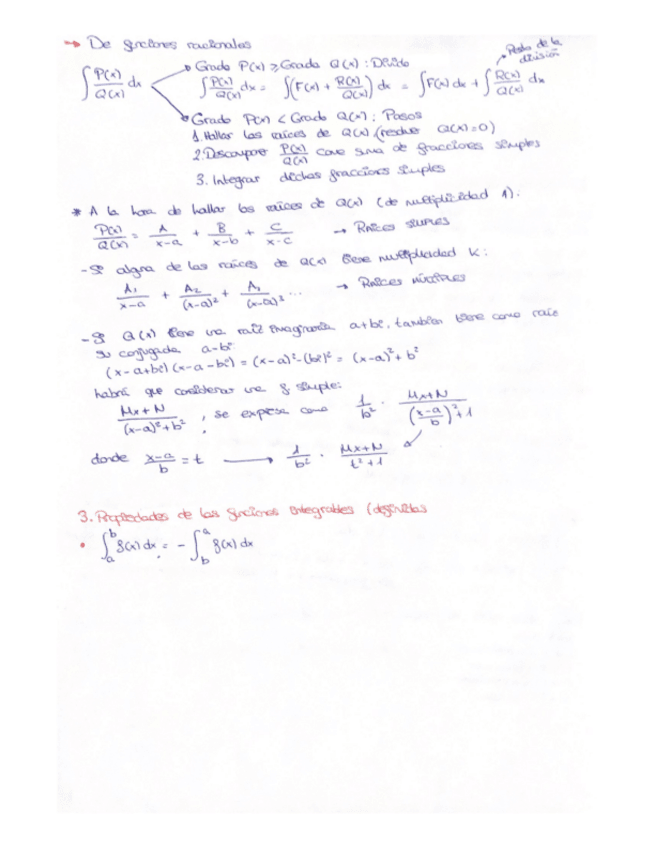 → De funciones racionales
∫ P(x)/Q(x) dx
Grado P(x) ≥ Grado Q(x) : Divido
∫ P(x)/Q(x) dx = ∫(F(x) + R(x)/Q(x)) dx = ∫F(x) dx + ∫ R(x)/Q(x) dx
Resto de la división
Grado P(x) < Grado Q(x) : Pasos
1. Hallar las raíces de Q(x) (resolver Q(x)=0)
2. Descomponer P(x)/Q(x) como suma de fracciones simples
3. Integrar dichas fracciones simples
* A la hora de hallar las raíces de Q(x) (de multiplicidad 1):
P(x)/Q(x) = A/(x-a) + B/(x-b) + C/(x-c) → Raíces simples
- Si alguna de las raíces de Q(x) tiene multiplicidad K:
A₁/(x-a) + A₂/(x-a)² + A₃/(x-a)³ ... → Raíces múltiples
- Si Q(x) tiene una raíz imaginaria a+bi, también tiene como raíz
su conjugada a-bi
(x-a+bi)(x-a-bi) = (x-a)²-(bi)² = (x-a)²+b²
habrá que considerar una f simple:
Mx+N/(x-a)²+b² , se expresa como 1/b² · Mx+N/((x-a)/b)²+1
donde x-a/b = t ⟶ 1/b² · Mx+N/t²+1
3. Propiedades de las funciones integrables (definidas
• ∫ₐᵇ f(x) dx = - ∫ᵇₐ f(x) dx